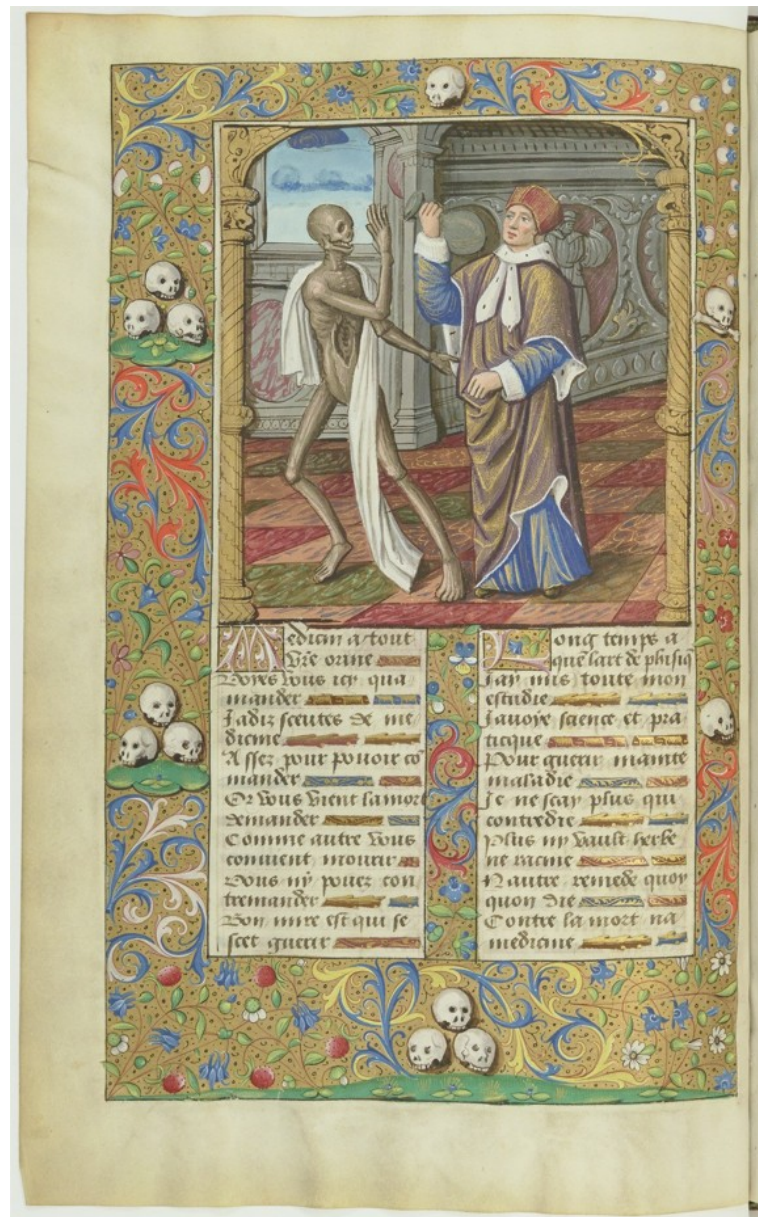 Medicin a tout
vr̄e orine
Voyes vous icy qua
mander
Jadiz sceutes de me
dicine
Assez pour pouoir cō
mander
Or vous vient la mort
demander
Comme autre vous
conuient mourir
Vous ny pouez con
tremander
Bon mire est qui se
scet guerir
Long temps a
que lart de phisiq
Jay mis toute mon
estudie
Jauoye science et pra
ticque
Pour guerir mainte
maladie
Je ne scay plus qui
contredie
Plus ny vault herbe
ne racine
Nautre remede quoy
quon die
Contre la mort na
medicine